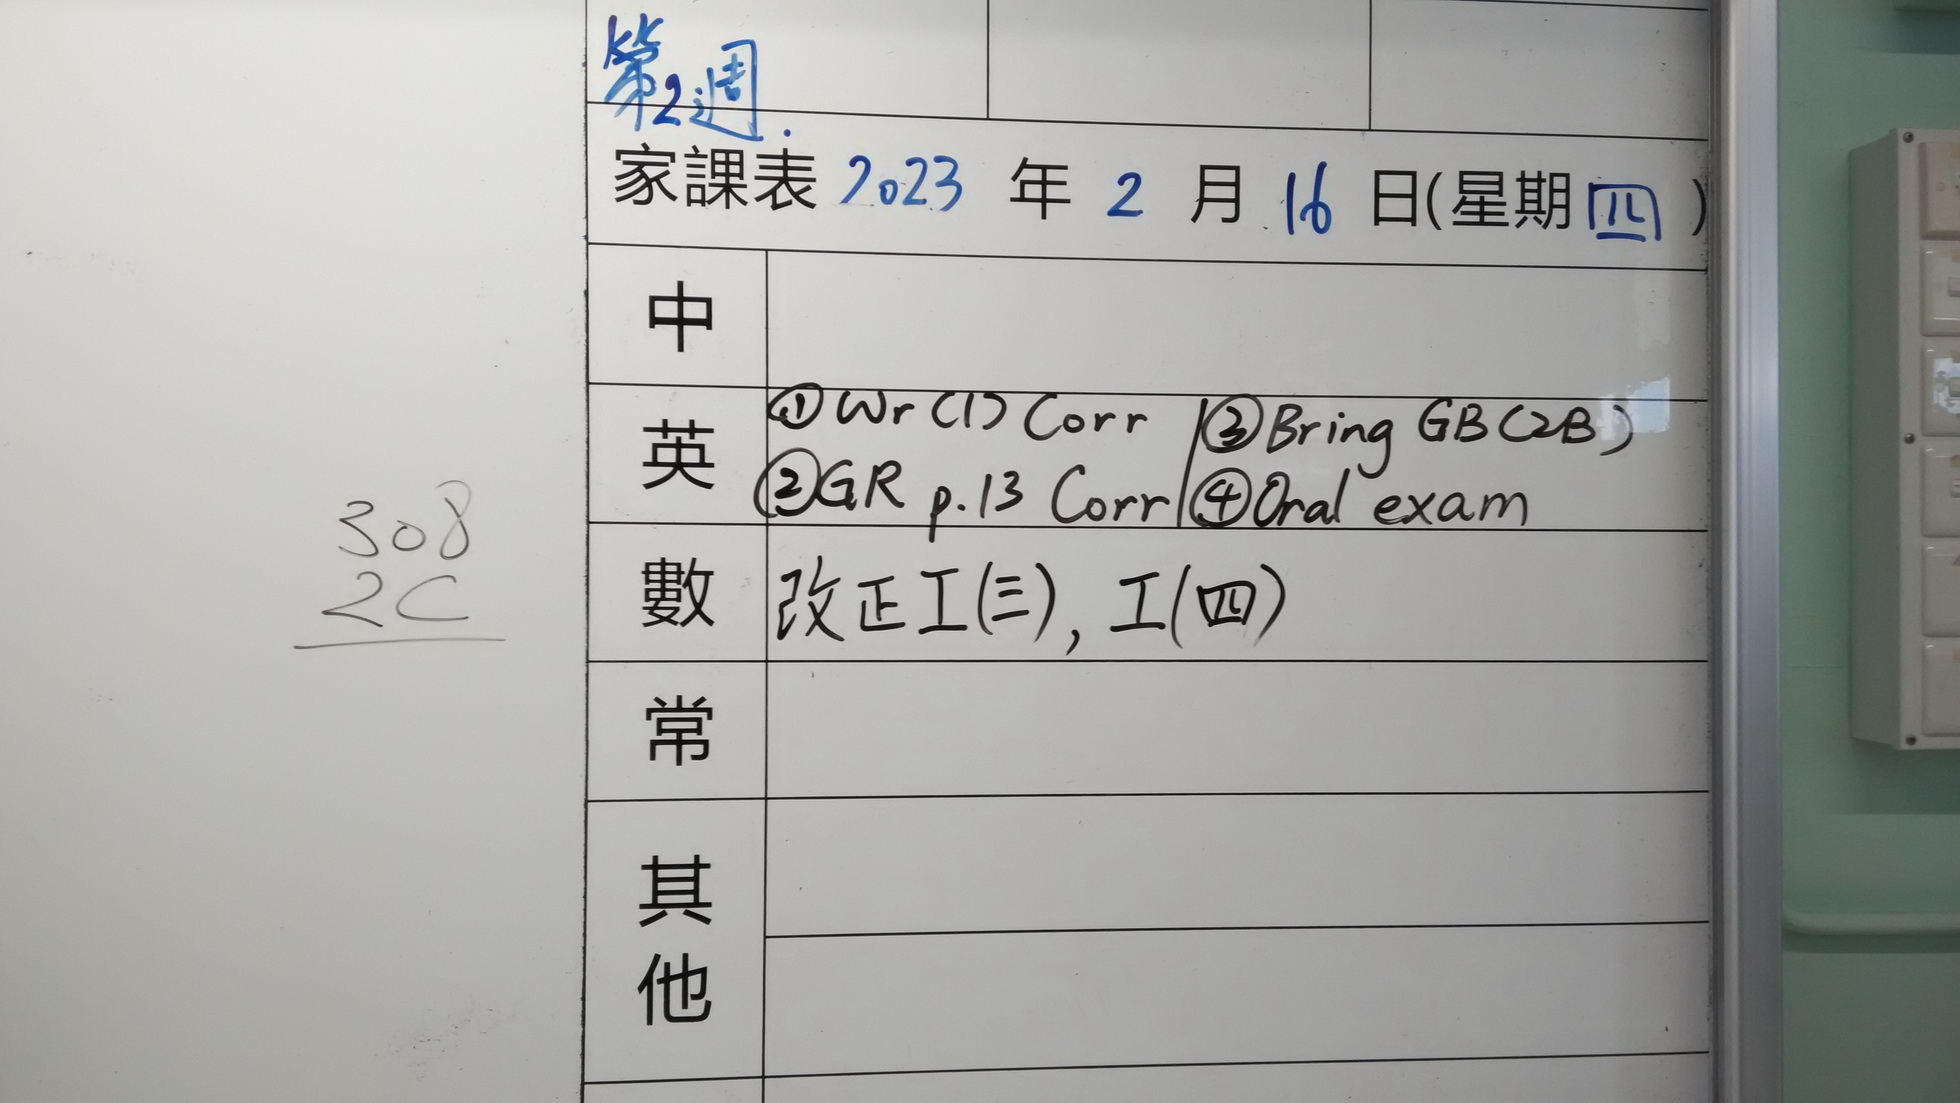 第2週.
家課表 2023 年 2 月 16 日(星期四)
中
英
①Wr(1) Corr ③Bring GB(2B)
②GR p.13 Corr ④Oral exam
數 改正工(三), 工(四)
常
其
他
308
2C